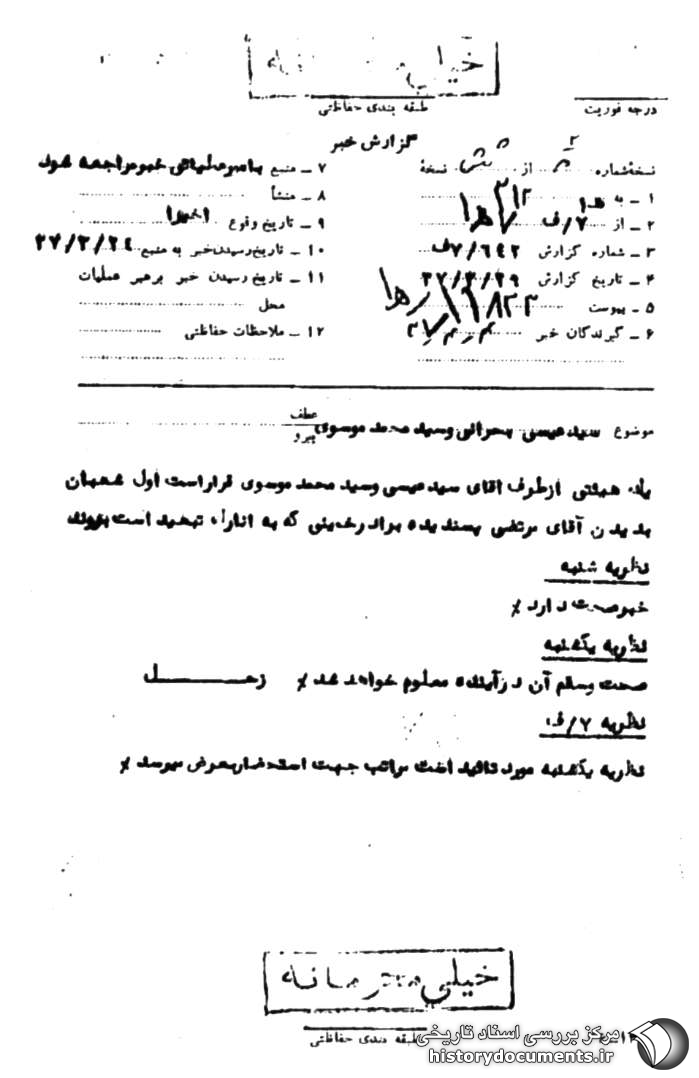 خیلی
طبقه بندی حفاظتی
درجه فوریت
گزارش خبر
نسخهٔ شماره از نسخهٔ
۱ ـ به ۳۱۲
۲ ـ از ۷/ف
۳ ـ شماره گزارش ۷/۶۴۲ف
۴ ـ تاریخ گزارش ۳۷/۳/۲۹
۵ ـ پیوست
۶ ـ گیرندگان خبر
۷ ـ منبع بامرعملیاتی خبرمراجعه شود
۸ ـ منشأ
۹ ـ تاریخ وقوع اخیرا
۱۰ ـ تاریخ رسیدن خبر به منبع ۳۷/۳/۲۴
۱۱ ـ تاریخ رسیدن خبر برهبر عملیات
محل
۱۲ ـ ملاحظات حفاظتی
موضوع سید عیسی بحرانی وسید محمد موسوی
عطف
پیرو
یک هیئتی ازطرف اقای سید عیسی وسید محمد موسوی قراراست اول شعبان
بدیدن آقای مرتضی پسندیده برادرخمینی که به انارک تبعید است بروند
نظریه شنبه
خبرصحت دارد /
نظریه یکشنبه
صحت وسقم آن درآینده معلوم خواهد شد / زحل
نظریه ۷/ف
نظریه یکشنبه مورد تائید است مراتب جهت استحضاربعرض میرسد /
خیلی محرمانه
طبقه بندی حفاظتی
مرکز بررسی اسناد تاریخی
historydocuments.ir